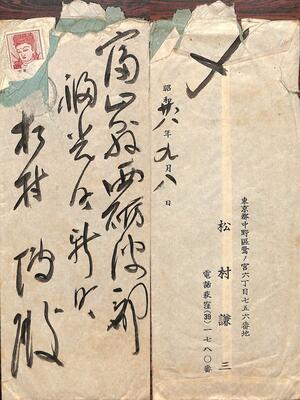 富山縣西礪波郡
福光町新町
松村
殿
昭和卅八年九月八日
東京都中野區鷺ノ宮六丁目七五六番地
松村謙三
電話荻窪(39)一七八〇番